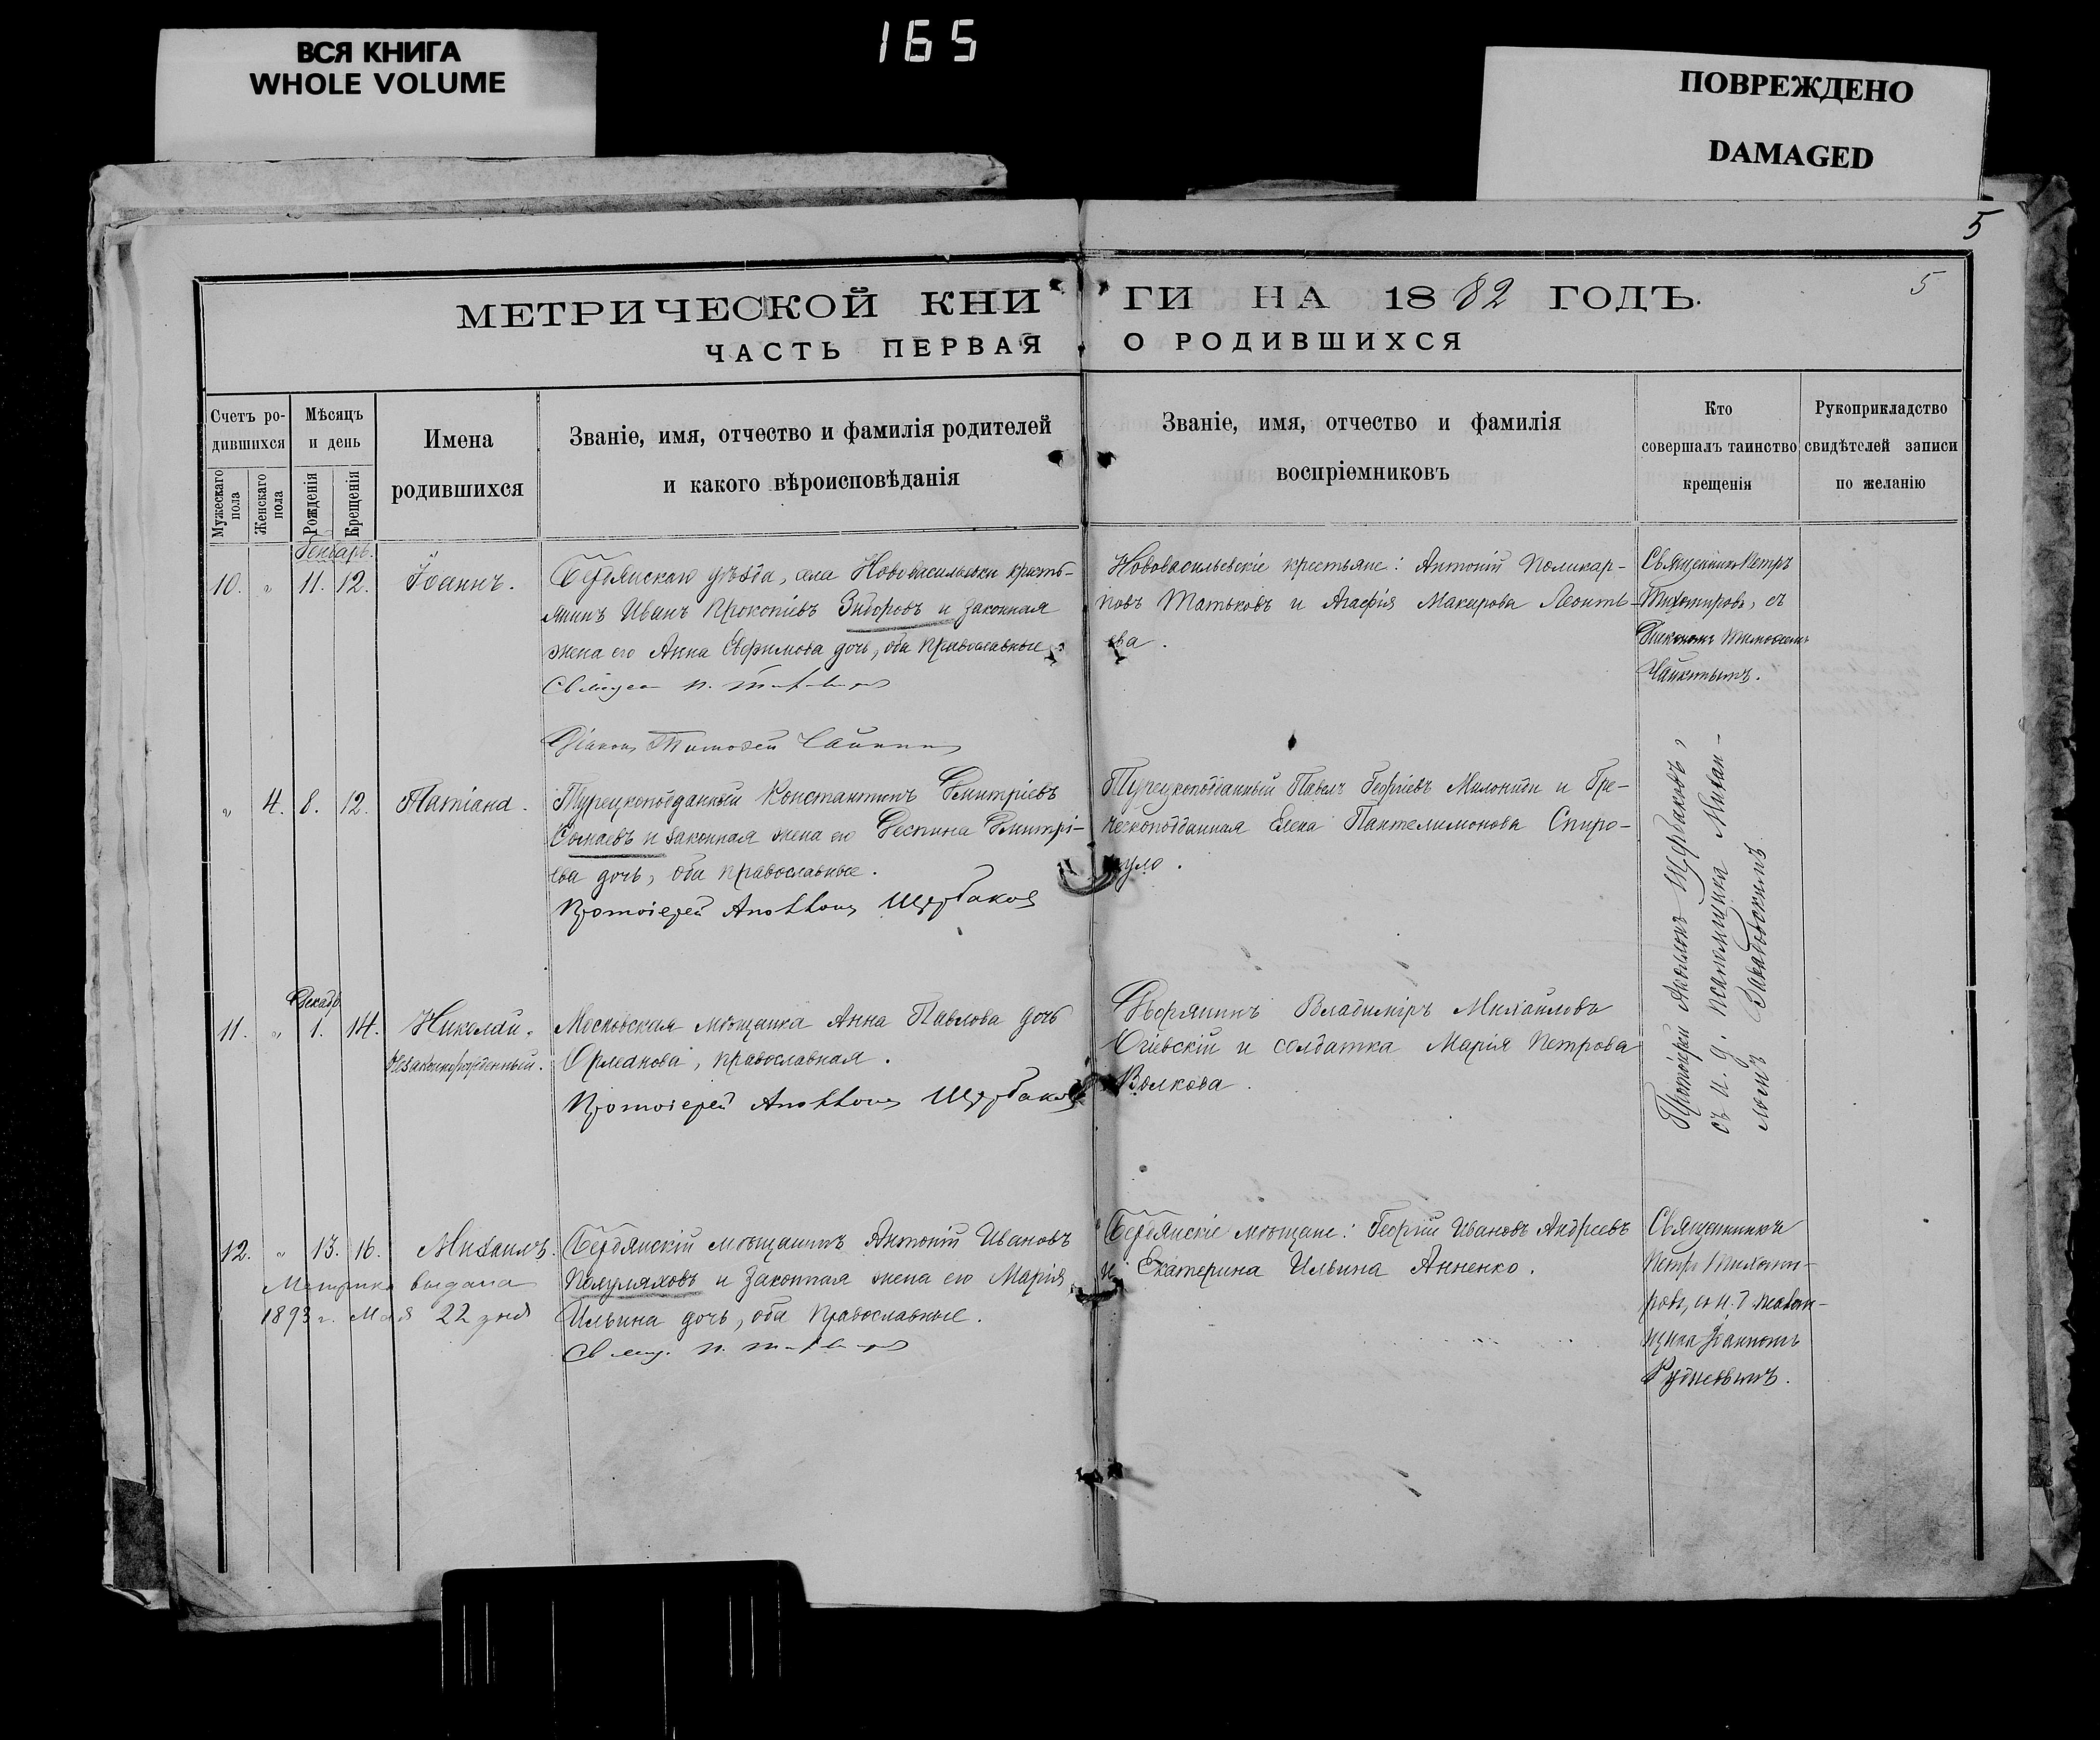 165
ВСЯ КНИГА
WHOLE VOLUME
ПОВРЕЖДЕНО
DAMAGED
5
5
МЕТРИЧЕСКОЙ КНИГИ НА 1882 ГОДЪ.
ЧАСТЬ ПЕРВАЯ О РОДИВШИХСЯ
Счетъ ро-
дившихся
Мужескаго пола
Женскаго пола
Мѣсяцъ
и день
Рожденія
Крещенія
Имена
родившихся
Званіе, имя, отчество и фамилія родителей
и какого вѣроисповѣданія
Званіе, имя, отчество и фамилія
воспріемниковъ
Кто
совершалъ таинство
крещенія
Рукоприкладство
свидѣтелей записи
по желанію
Генварь.
10. " 11. 12. Іоаннъ.
Бердянскаго уѣзда, села Нововасильевки кресть-
янинъ Иванъ Прокопіевъ и законная
жена его Анна Евфимова дочь, оба православные.
Діаконъ Тимофей
Нововасильевскіе крестьяне: Антоній Поликар-
повъ Татьковъ и Агафія Макарова Леонть-
ева.
Священникъ Петръ
Тихомировъ, съ
Діакономъ Тимофеемъ
" 4. 8. 12. Татіана.
Турецкоподданный Константинъ Дмитріевъ
и законная жена его Деспина Дмитрі-
ева дочь, оба православные.
Протоіерей Аполлонъ Щербаковъ
Турецкоподданный Павелъ Георгіевъ и Гре-
ческоподданная Елена Пантелимонова Спиро-
пуло.
Протоіерей Аполлонъ Щербаковъ,
съ и. д. псаломщика Михаи-
ломъ
Декабр.
11. " 1. 14. Николай.
Незаконнорожденный.
Московская мѣщанка Анна Павлова дочь
Орлеанова, православная.
Протоіерей Аполлонъ Щербаковъ
Дворянинъ Владиміръ Михаиловъ
Огіевскій и солдатка Марія Петрова
Волкова.
12. " 13. 16. Михаилъ.
Метрика выдана
1893 г. Мая 22 дня
Бердянскій мѣщанинъ Антоній Ивановъ
и законная жена его Марія
Ильина дочь, оба православные.
Бердянскіе мѣщане: Георгій Ивановъ Андреевъ
и Екатерина Ильина Анненко.
Священникъ
Петръ Тихоми-
ровъ, съ и. д. псалом-
щика Іоанномъ
Рудневымъ.